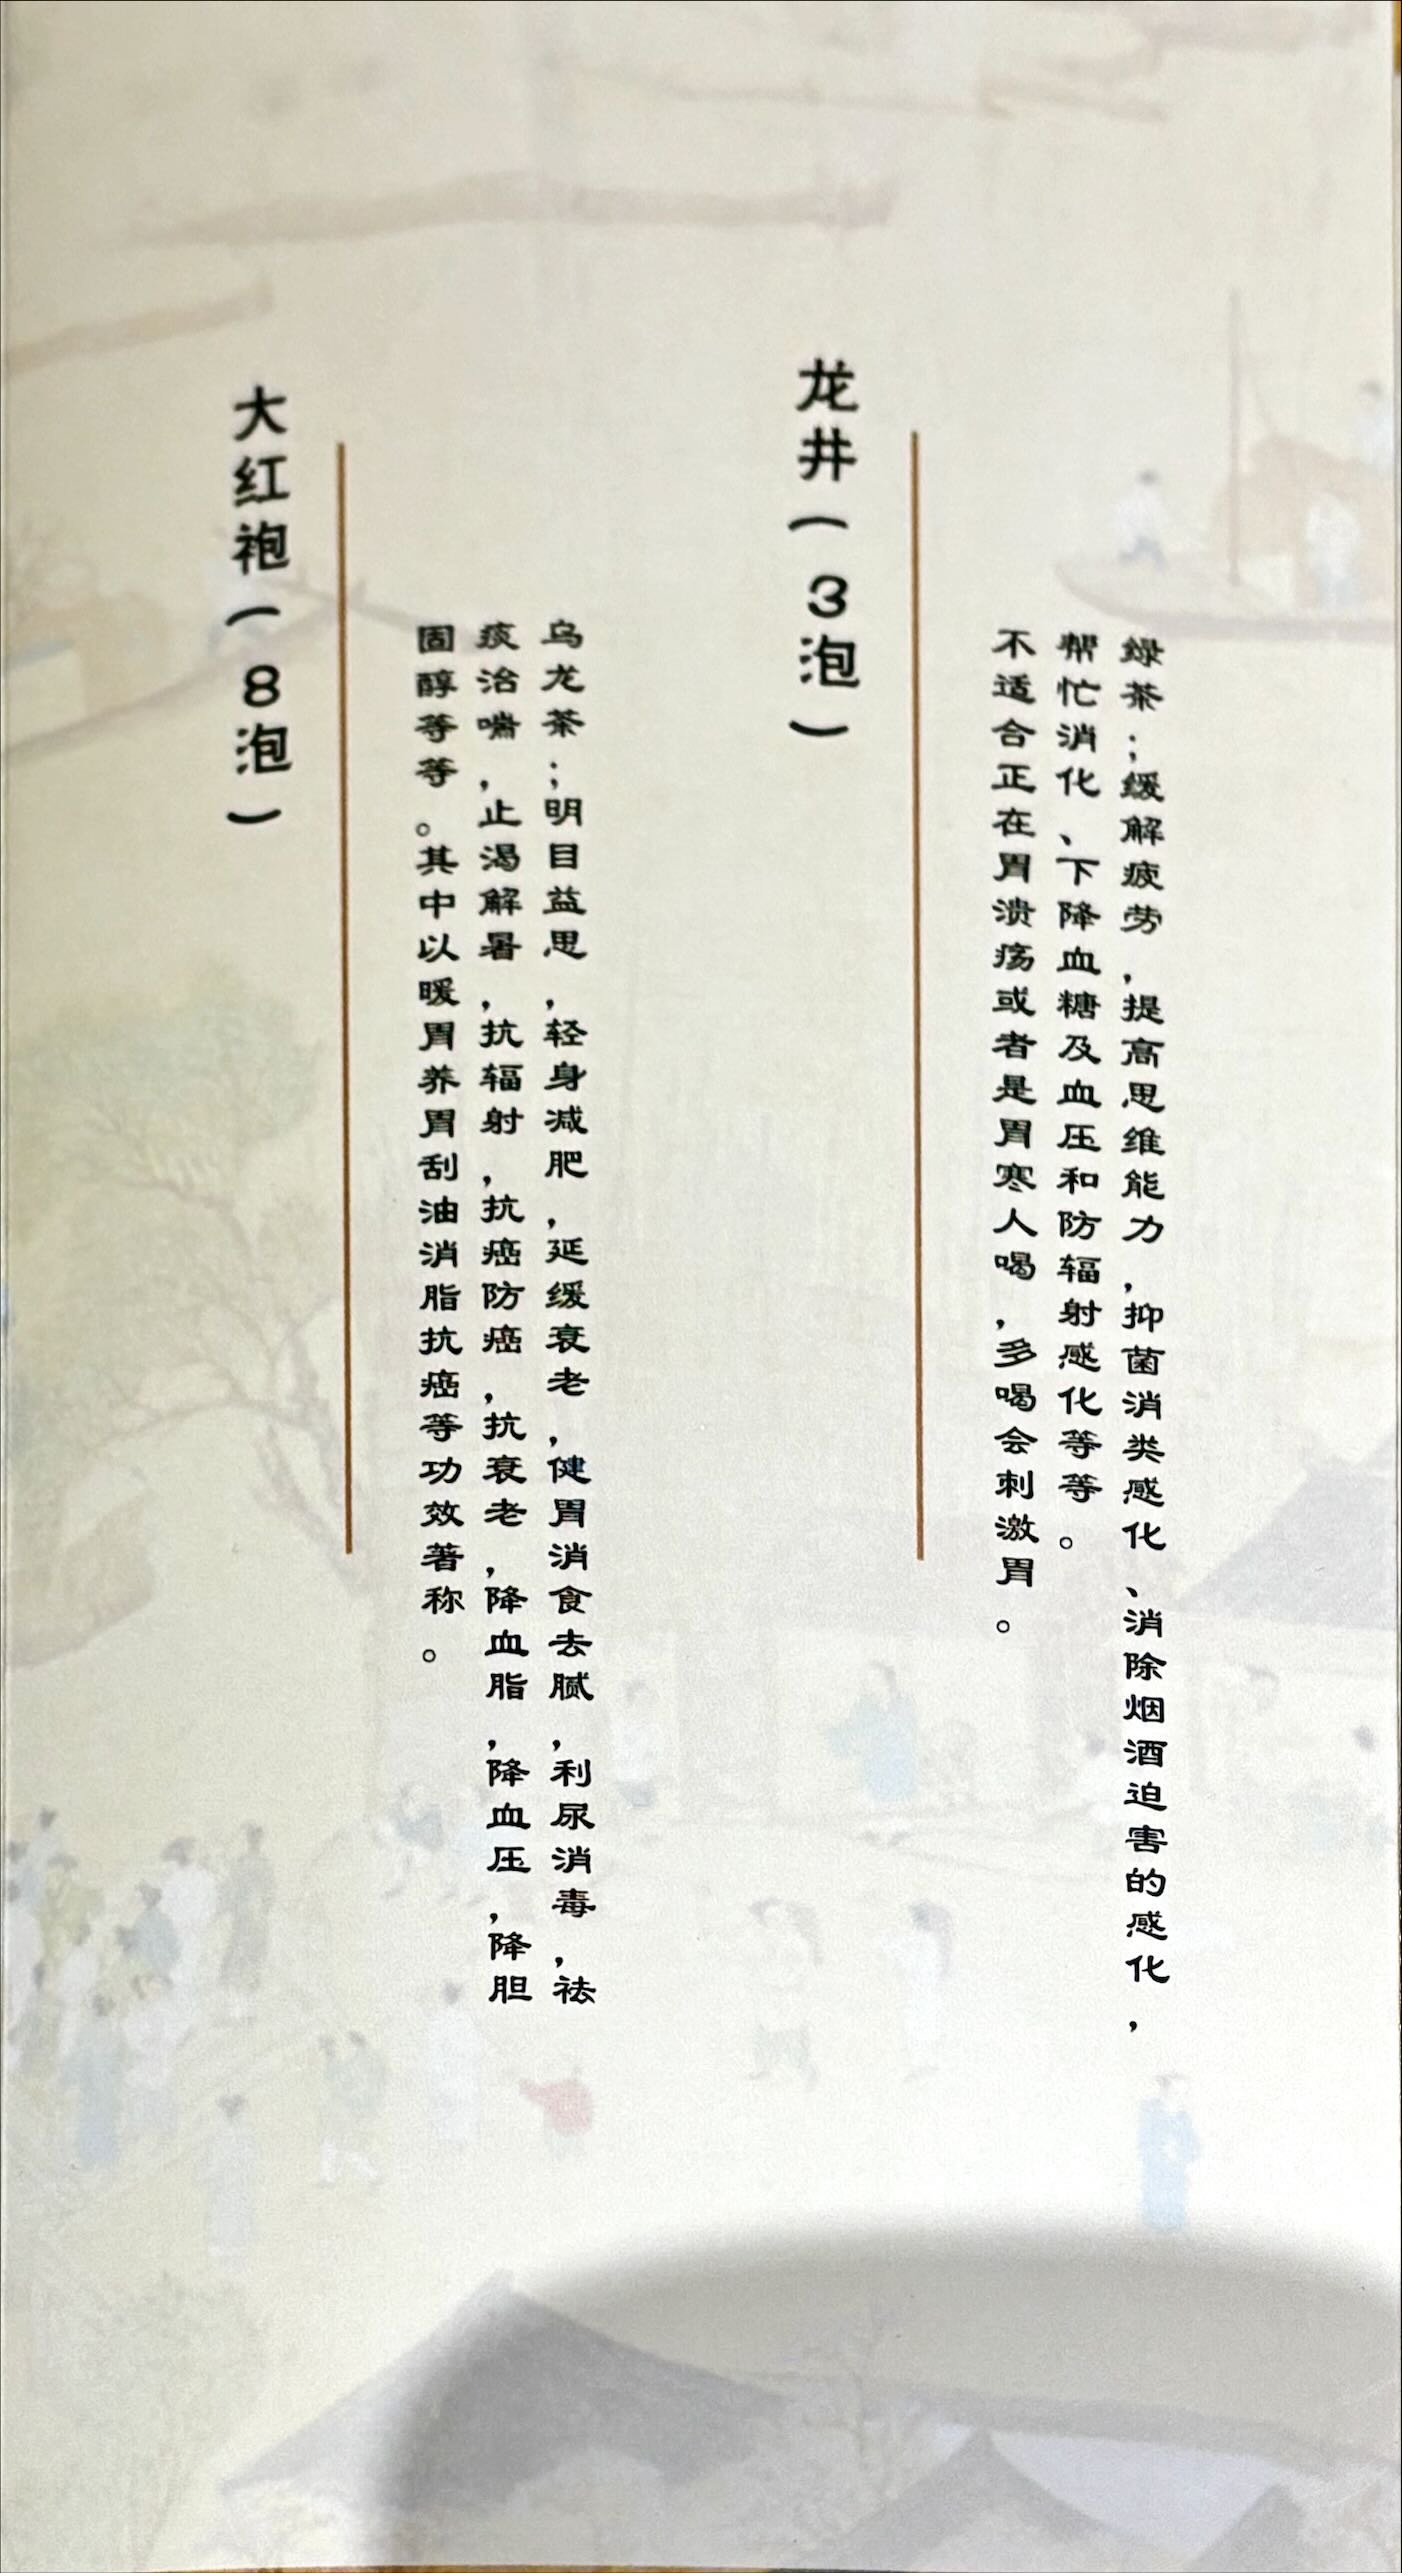 龙井(3泡)
绿茶;缓解疲劳,提高思维能力,抑菌消类感化、消除烟酒迫害的感化,
帮忙消化、下降血糖及血压和防辐射感化等等。
不适合正在胃溃疡或者是胃寒人喝,多喝会刺激胃。
大红袍(8泡)
乌龙茶;明目益思,轻身减肥,延缓衰老,健胃消食去腻,利尿消毒,祛
痰治喘,止渴解暑,抗辐射,抗癌防癌,抗衰老,降血脂,降血压,降胆
固醇等等。其中以暖胃养胃刮油消脂抗癌等功效著称。